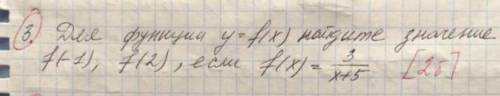 3. Для функции y = f(x) найдите значение
f(-1), f(2), если f(x) = 3/(x+5) [2б]